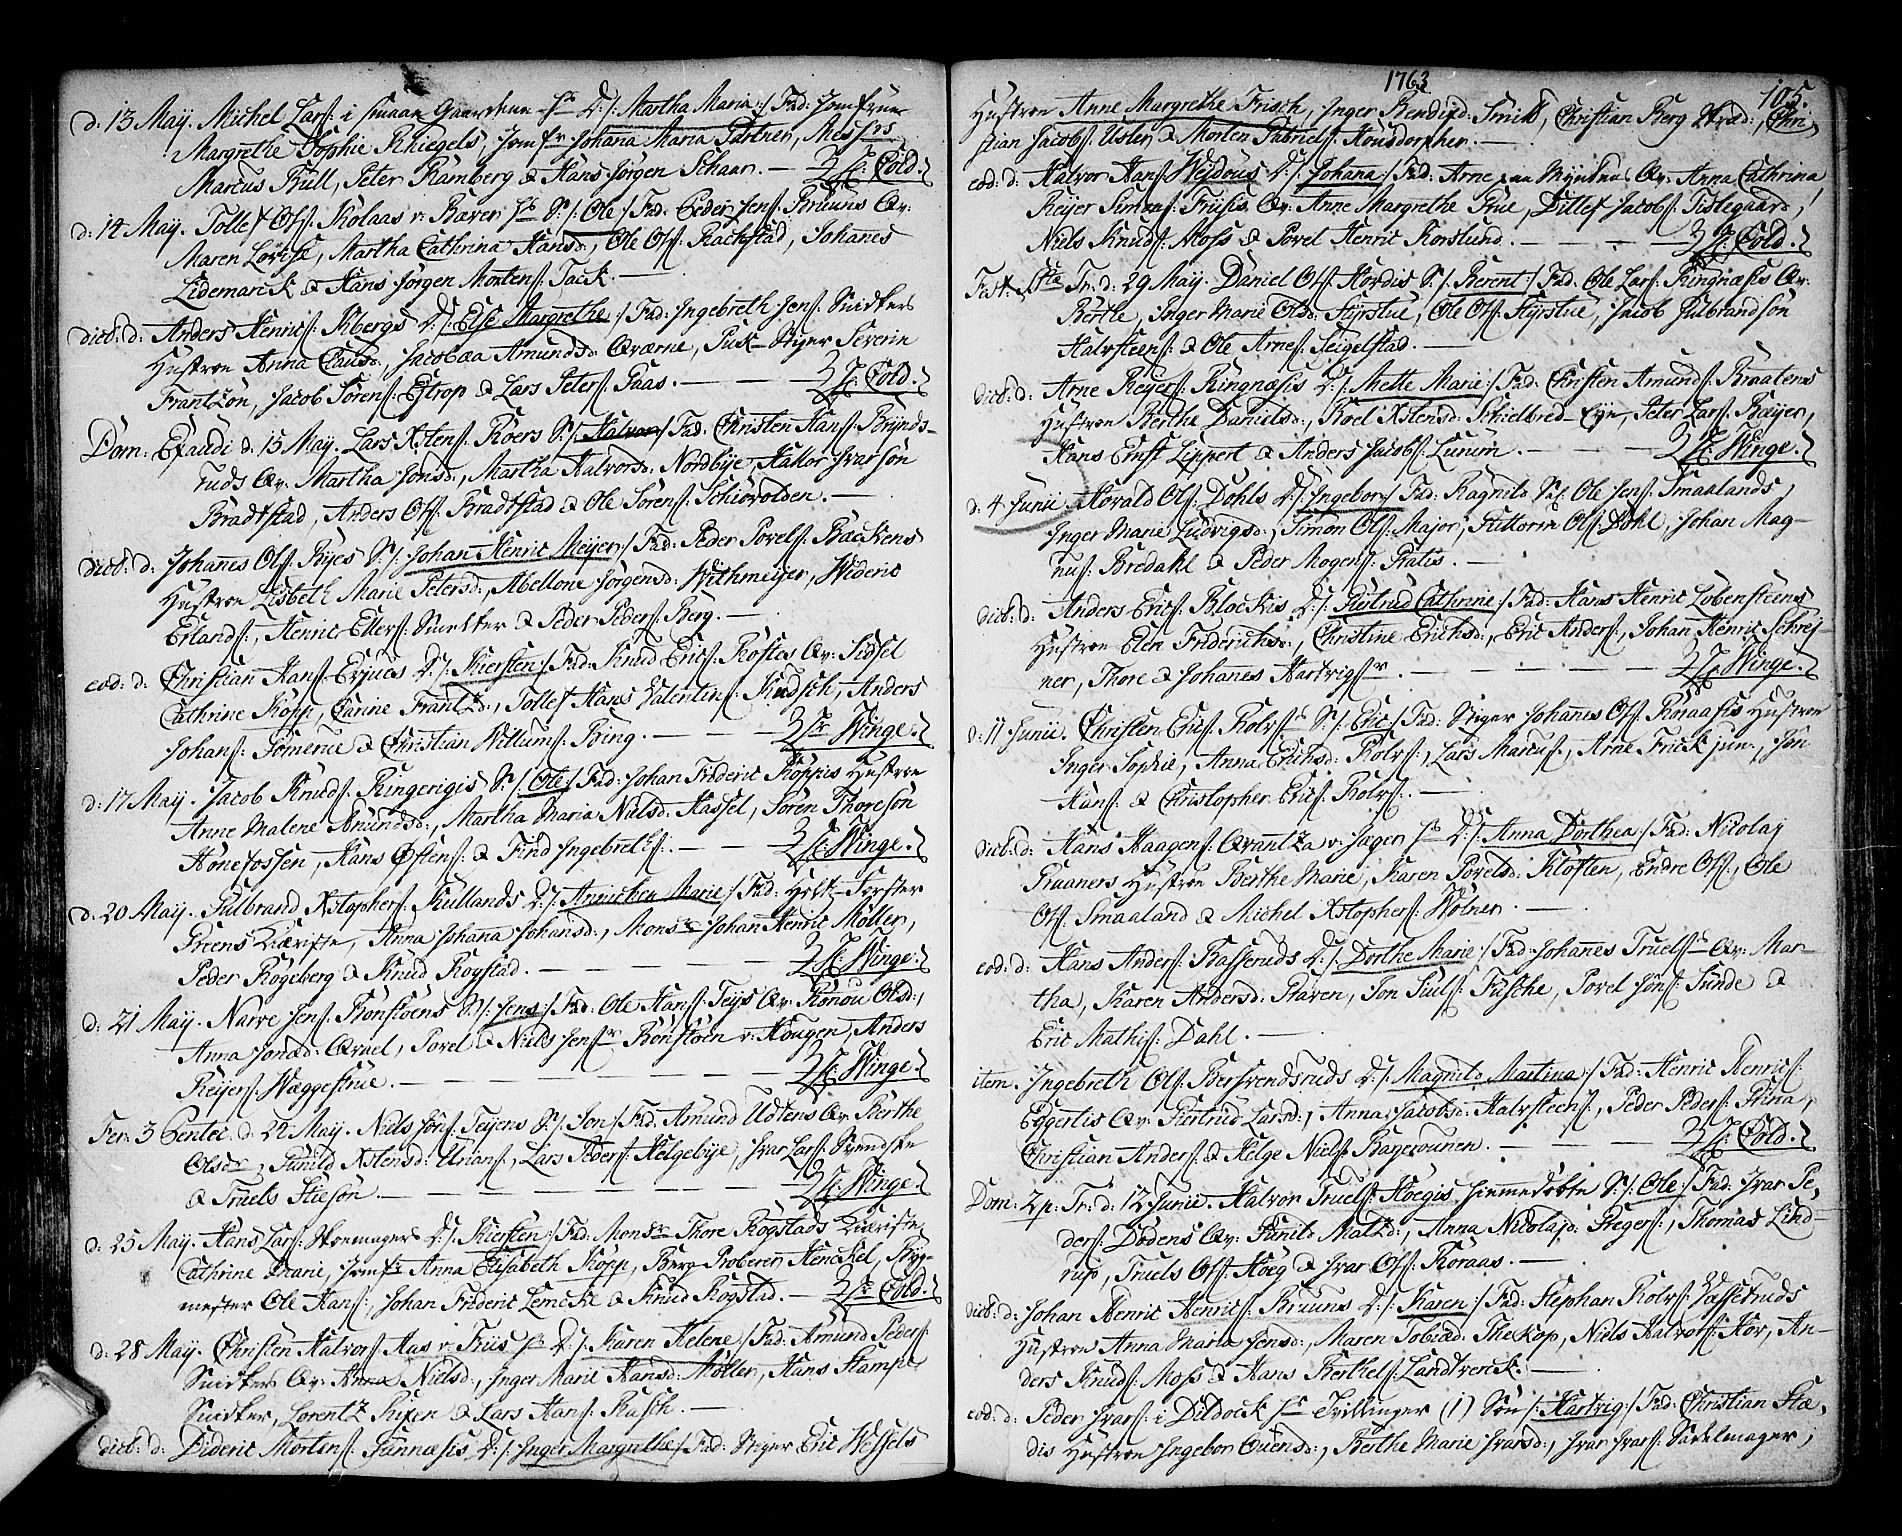 d. 13 Maij. Michel Lars: i Smaae Gaardene hs D: /: Martha Maria :/ Fad: Jomfrue
Margrethe Sophie Khiegels, Jomfr Johana Maria Gartner, Messrs
Marcus Bull, Peter Ramberg & Hans Jörgen Schaar. — H: Cold.
d: 14 Maij. Tollef Ols: Kolaas v: Baren hs S: /: Ole :/ Fad. Peder Jens: Bruuns Qv:
Maren Lovise, Martha Cathrina Hansd:, Ole Ols: Rachstad, Johanes
Lidemarck & Hans Jörgen Mortens: Tack. —
dieb: d: Anders Henrics: Kbergs D: /: Else Margrethe :/ Fad: Ingebreth Jens: Snidkers
Hustroe Anna Clausd:, Jacobæa Amundsd: Qværne, Stiger Severin
Frantzön, Jacob Sörens: Estrop & Lars Peters: Faas. — H: Cold.
Dom: Exaudi d: 15 Maij. Lars Xstens: Roers S: /: Halvor :/ Fad. Christen Hans: Brynds-
ruds Qv: Martha Jonsd:, Martha Halvorsd: Nordbye, Halvor Ivarsön
Bradtstad, Anders Ols: Bradtstad & Ole Sörens: Schiövolden. —
dieb: d: Johanes Ols: Byes S: /: Johan Henric Meyer :/ Fad: Peder Povels: Backens
Hustroe Lisbeth Marie Petersd:, Abellone Jörgensd: Withmeijer, Wideric
Erlands:, Henric Ellers: Snidker & Peder Peders: Berg. —
eod: d: Christian Hans: Erjucs D: /: Kiersten :/ Fad: Knud Erics: Kostes Qv: Sidsel
Cathrine Kopp, Carine Frantzd:, Tollef Hans Valentins: Kudsch, Anders
Johans: Tomerue & Christian Willums: Bing. — H: Winge.
d: 17 Maij. Jacob Knuds: Ringerigis S: /: Ole :/ Fad: Johan Frideric Koppis Hustroe
Anne Malene Amundsd:, Martha Maria Nielsd: Hassel, Sören Thoresön
Hönefossen, Hans Östens: & Find Ingebreths:. — H: Winge.
d: 20 Maij. Gulbrand Xstophers: Kullands D: /: Annichen Marie :/ Fad: Holtz-Forster
Greens Kiæriste, Anna Johana Johansd:, Monsr Johan Henric Möller,
Peder Rogeberg & Knud Rogstad. — H: Winge.
d: 21 Maij. Narve Jens: Rönstöens S: /: Jens :/ Fad: Ole Hans: Teijs Qv: Rönou Olsd:,
Anna Jonæd: Qvael, Povel & Niels Jensr Rönstöen v: Hougen, Anders
Reijers: Wæggestrue. — H: Winge.
Fer: 3 Pentec. d: 24 Maij. Niels Jöns: Teijens S: /: Jon :/ Fad. Amund Udtens Qv: Berthe
Olsdr, Gunild Xstensd: Urians:, Lars Peders: Helgebye, Ivar Lars: Svendske
& Truels Stiesön. — H: Winge.
d: 25 Maij. Hans Lars: Skoemagers D: /: Kiersten :/ Fad: Monsr Thore Rogstads Kiæriste
Cathrine Marie, Jomfr Anna Elisabeth Kopp, Berg Proberer Henckel, Byg-
mester Ole Hans:, Johan Frideric Lemcke & Knud Rogstad. — H: Cold.
d: 28 Maij. Christen Halvors: Aas v: Friis hs D: /: Karen Helene :/ Fad: Amund Peders:
Snidkers Qv: Anna Nielsd:, Inger Marie Hansd: Möller, Hans Stampe
Snidker, Lorentz Kixen & Lars Hans: Fasch. —
dieb: d: Dideric Mortens: Gunnæsis D: /: Inger Margrethe :/ Fad: Stiger Eric Wessels
1763
105.
Hustroe Anne Margrethe Frisch, Inger Bendixd: Smith, Christian Berg Stud:, Chri-
stian Jacobs: Uster & Morten Gabriels: Hönddorpher. —
eod: d: Halvor Hans: Weijdous D: /: Johana :/ Fad: Arne paa Mynten Qv: Anna Cathrina
Reijer Simens: Friisis Qv: Anne Margrethe True, Ditlef Jacobs: Tislegaard,
Niels Knuds: Moss & Povel Henric Korslund. — H: Cold.
Fest: Sta Tr: d: 29 Maij. Daniel Ols: Hordis S: /: Berent :/ Fad. Ole Lars: Ringnæsis Qv:
Berthe, Inger Marie Olsd: Styrstue, Ole Ols: Styrstue, Jacob Gulbrandsön
Halvsteens: & Ole Arnes: Teigelstad. —
dieb: d: Arne Reijers: Ringnæsis D: /: Mette Marie :/ Fad: Christen Amunds: Braatens
Hustroe Berthe Danielsd:, Boel Xstensd: Schielbred-Eyn, Peter Lars: Bæijer,
Hans Ernst Lippert & Anders Jacobs: Lunim. — H: Winge.
d: 4 Junii. Harald Ols: Dohls D: /: Ingebor :/ Fad: Ragnild S: Ole Jens: Smaalands,
Inger Marie Ludvigsd:, Simon Ols: Major, Guttorm Ols: Dohl, Johan Mag-
nus: Bredahl & Peder Mogens: Ratis. —
dieb: d: Anders Erics: Blockis D: /: Giertrud Cathrine :/ Fad: Hans Henric Lobensteens
Hustroe Elen Friderichsd:, Christine Erichsd:, Eric Anders:, Johan Henric Schrej-
ner, Thore & Johanes Hartvigsr. — H: Winge.
d: 11 Junii. Christen Erics: Rolvs: S: /: Eric :/ Fad: Stiger Johanes Ols: Roraasis Hustroe
Inger Sophie, Anna Erichsd: Rolvs:, Lars Marcus:, Arne Frick jun:, Jön
Hans: & Christopher Erics: Rolvs:. —
dieb: d: Hans Haagens: Qvantza v: Jager hs D: /: Anna Dorthea :/ Fad: Nicolaij
Gruaners Hustroe Berthe Marie, Karen Povelsd: Kloften, Endre Ols:, Ole
Ols: Smaaland & Michel Xstophers: Wölner. —
eod: d: Hans Anders: Basseruds D: /: Dorthe Marie :/ Fad: Johanes Truels: Qv: Mar-
tha, Karen Andersd: Graven, Jon Juels: Fusche, Povel Jöns: Sunde &
Eric Mathis: Dahl. —
item. Ingebreth Ols: Bersvendsruds D: /: Magnild Martina :/ Fad: Henric Henrics:
Eggertis Qv: Giertrud Larsd:, Anna Jacobsd: Halvsteens:, Peder Peders: Prina,
Christian Anders: & Helge Niels: Bagerovnen. — H: Cold.
Dom: 2 p: Tr: d: 12 Junii. Halvor Truels: Höegis Hiemedöbte S: /: Ole :/ Fad: Ivar Pe-
ders: Dödens Qv: Gunild Matzd:, Anna Nicolajd: Gregers:, Thomas Lind-
rup, Truels Ols: Höeg & Ivar Ols: Roraas. —
dieb: d: Johan Henric Henrics: Bruuns D: /: Karen :/ Fad: Stephan Rolvs: Væssetruds
Hustroe Anna Maria Jensd:, Maren Tobiæd: Thekop, Niels Halvors: Hör, An-
ders Knuds: Moss & Hans Berthels: Landtverck. —
eod: d: Peder Ivars: i Dildock hs Tvillinger (1) Sön /: Hartvig :/ Fad: Christian Stæ-
dis Hustroe Ingebor Ovensd:, Berthe Marie Ivarsd:, Ivar Ivars: Sadelmager,